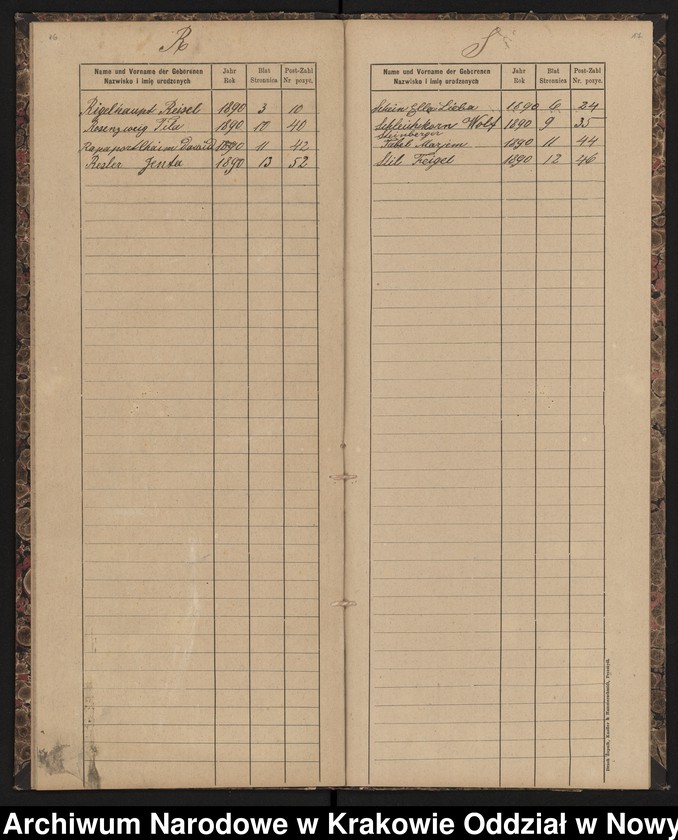 R
Name und Vorname der Geborenen
Nazwisko i imię urodzonych
Jahr
Rok
Blat
Stronnica
Post-Zahl
Nr pozyc.
Rigelhaupt Reisel 1890 3 10
Rosenzweig Tila 1890 10 40
Rapaport Chaim Dawid 1890 11 42
Resler Jenta 1890 13 52
S
Name und Vorname der Geborenen
Nazwisko i imię urodzonych
Jahr
Rok
Blat
Stronnica
Post-Zahl
Nr. pozyc.
Schein Ella 1890 6 24
Schleichkorn Wolf 1890 9 35
Steinberger
Marjem 1890 11 44
Stil Feigel 1890 12 46
Archiwum Narodowe w Krakowie Oddział w Nowy